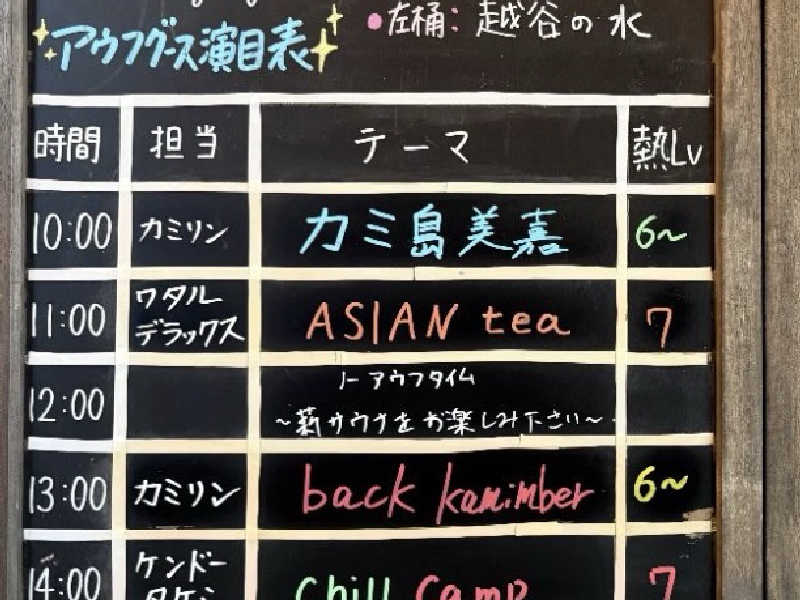 ●左桶：越谷の水
アウフグース演目表
時間 担当 テーマ 熱Lv
10:00 カミリン カミ島美嘉 6～
11:00 ワタル
デラックス ASIAN tea 7
12:00 ノーアウフタイム
～薪サウナをお楽しみ下さい～
13:00 カミリン back kamimber 6～
14:00 ケンドー
タケシ chill camp 7